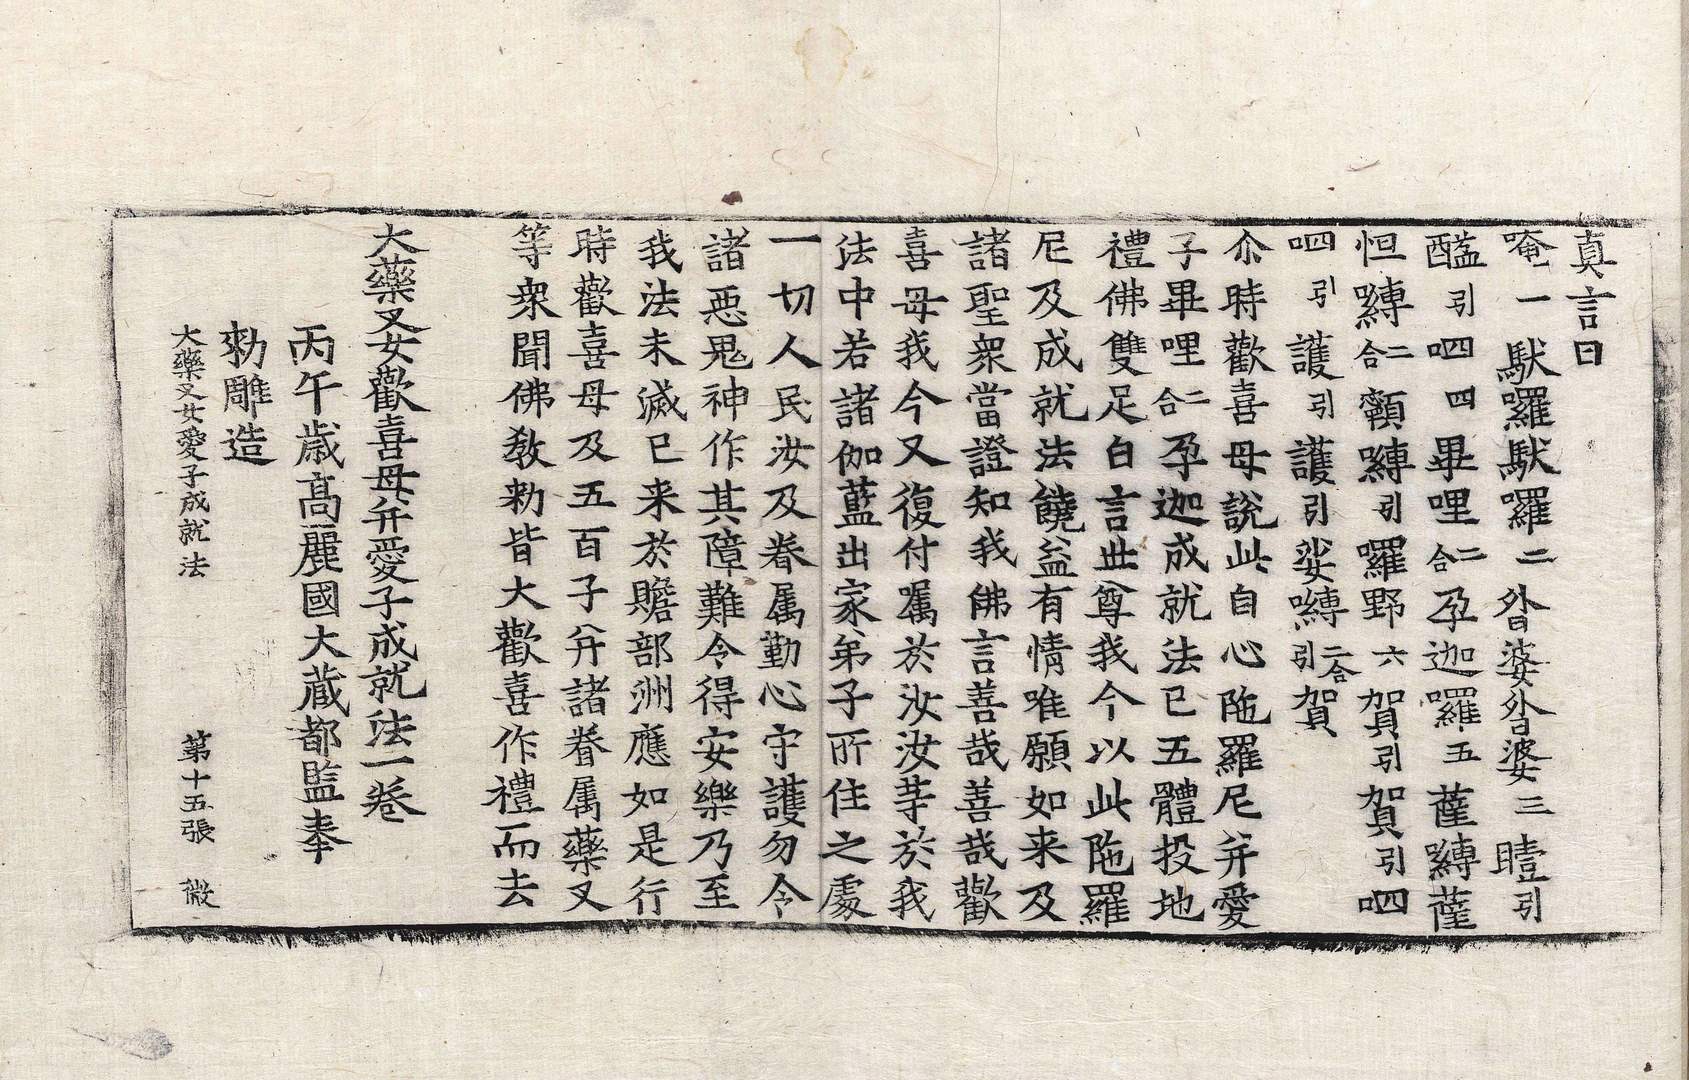 真言曰
唵一馱囉馱囉二沯婆沯婆三曀引
醯引呬四畢哩二合孕迦囉五薩嚩薩
怛嚩二合顙嚩引囉野六賀引賀引呬
呬引護引護引娑嚩二合引賀
尒時歡喜母說此自心陁羅尼并愛
子畢哩二合孕迦成就法已五體投地
禮佛雙足白言世尊我今以此陁羅
尼及成就法饒益有情唯願如来及
諸聖衆當證知我佛言善哉善哉歡
喜母我今又復付囑於汝汝等於我
法中若諸伽藍出家弟子所住之處
一切人民汝及眷属勤心守護勿令
諸惡鬼神作其障難令得安樂乃至
我法未滅已来於贍部洲應如是行
時歡喜母及五百子并諸眷属藥叉
等衆聞佛敎勑皆大歡喜作禮而去
大藥叉女歡喜母并愛子成就法一卷
丙午歳高麗國大蔵都監奉
勑雕造
大藥叉女愛子成就法 第十五張 微